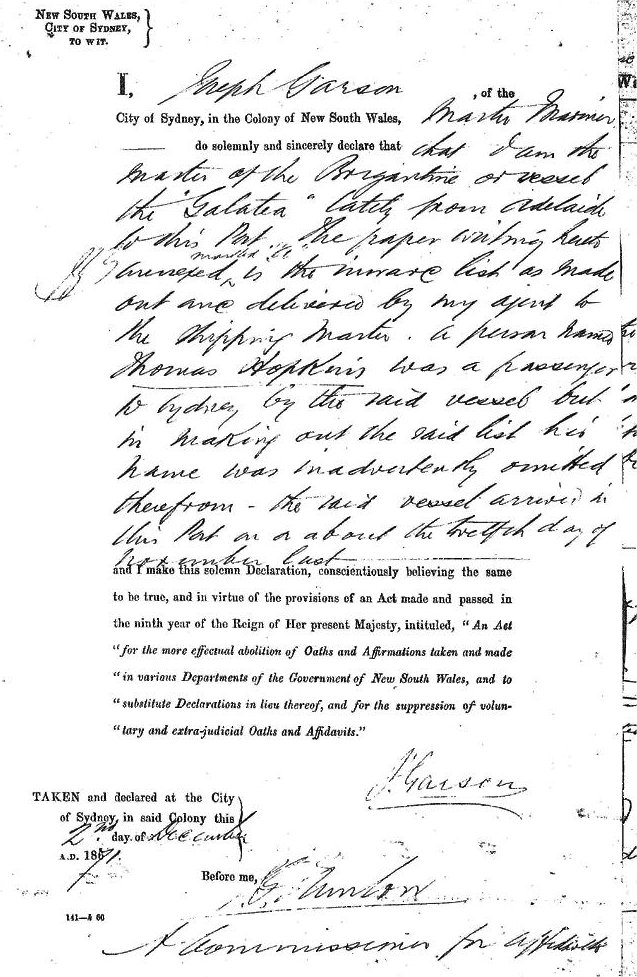 NEW SOUTH WALES,
CITY OF SYDNEY,
TO WIT.
I, Joseph Garson of the
City of Sydney, in the Colony of New South Wales, Master Mariner
do solemnly and sincerely declare that that I am the
Master of the Brigantine or vessel
the "Galatea" lately from Adelaide
to this Port. The paper writing hereto
marked A
annexed is the inward list as made
out and delivered by my agent to
the Shipping Master. A person named
Thomas Hopkins was a passenger
to Sydney by the said vessel but
in making out the said list his
name was inadvertently omitted
therefrom - the said vessel arrived in
this Port on or about the twelfth day of
November last
and I make this solemn Declaration, conscientiously believing the same
to be true, and in virtue of the provisions of an Act made and passed in
the ninth year of the Reign of Her present Majesty, intituled, "An Act
"for the more effectual abolition of Oaths and Affirmations taken and made
"in various Departments of the Government of New South Wales, and to
"substitute Declarations in lieu thereof, and for the suppression of volun-
"tary and extra-judicial Oaths and Affidavits."
J Garson
TAKEN and declared at the City
of Sydney, in said Colony this
2nd day of December
A.D. 1871.
Before me,
141—A 66
A Commissioner for affidavits